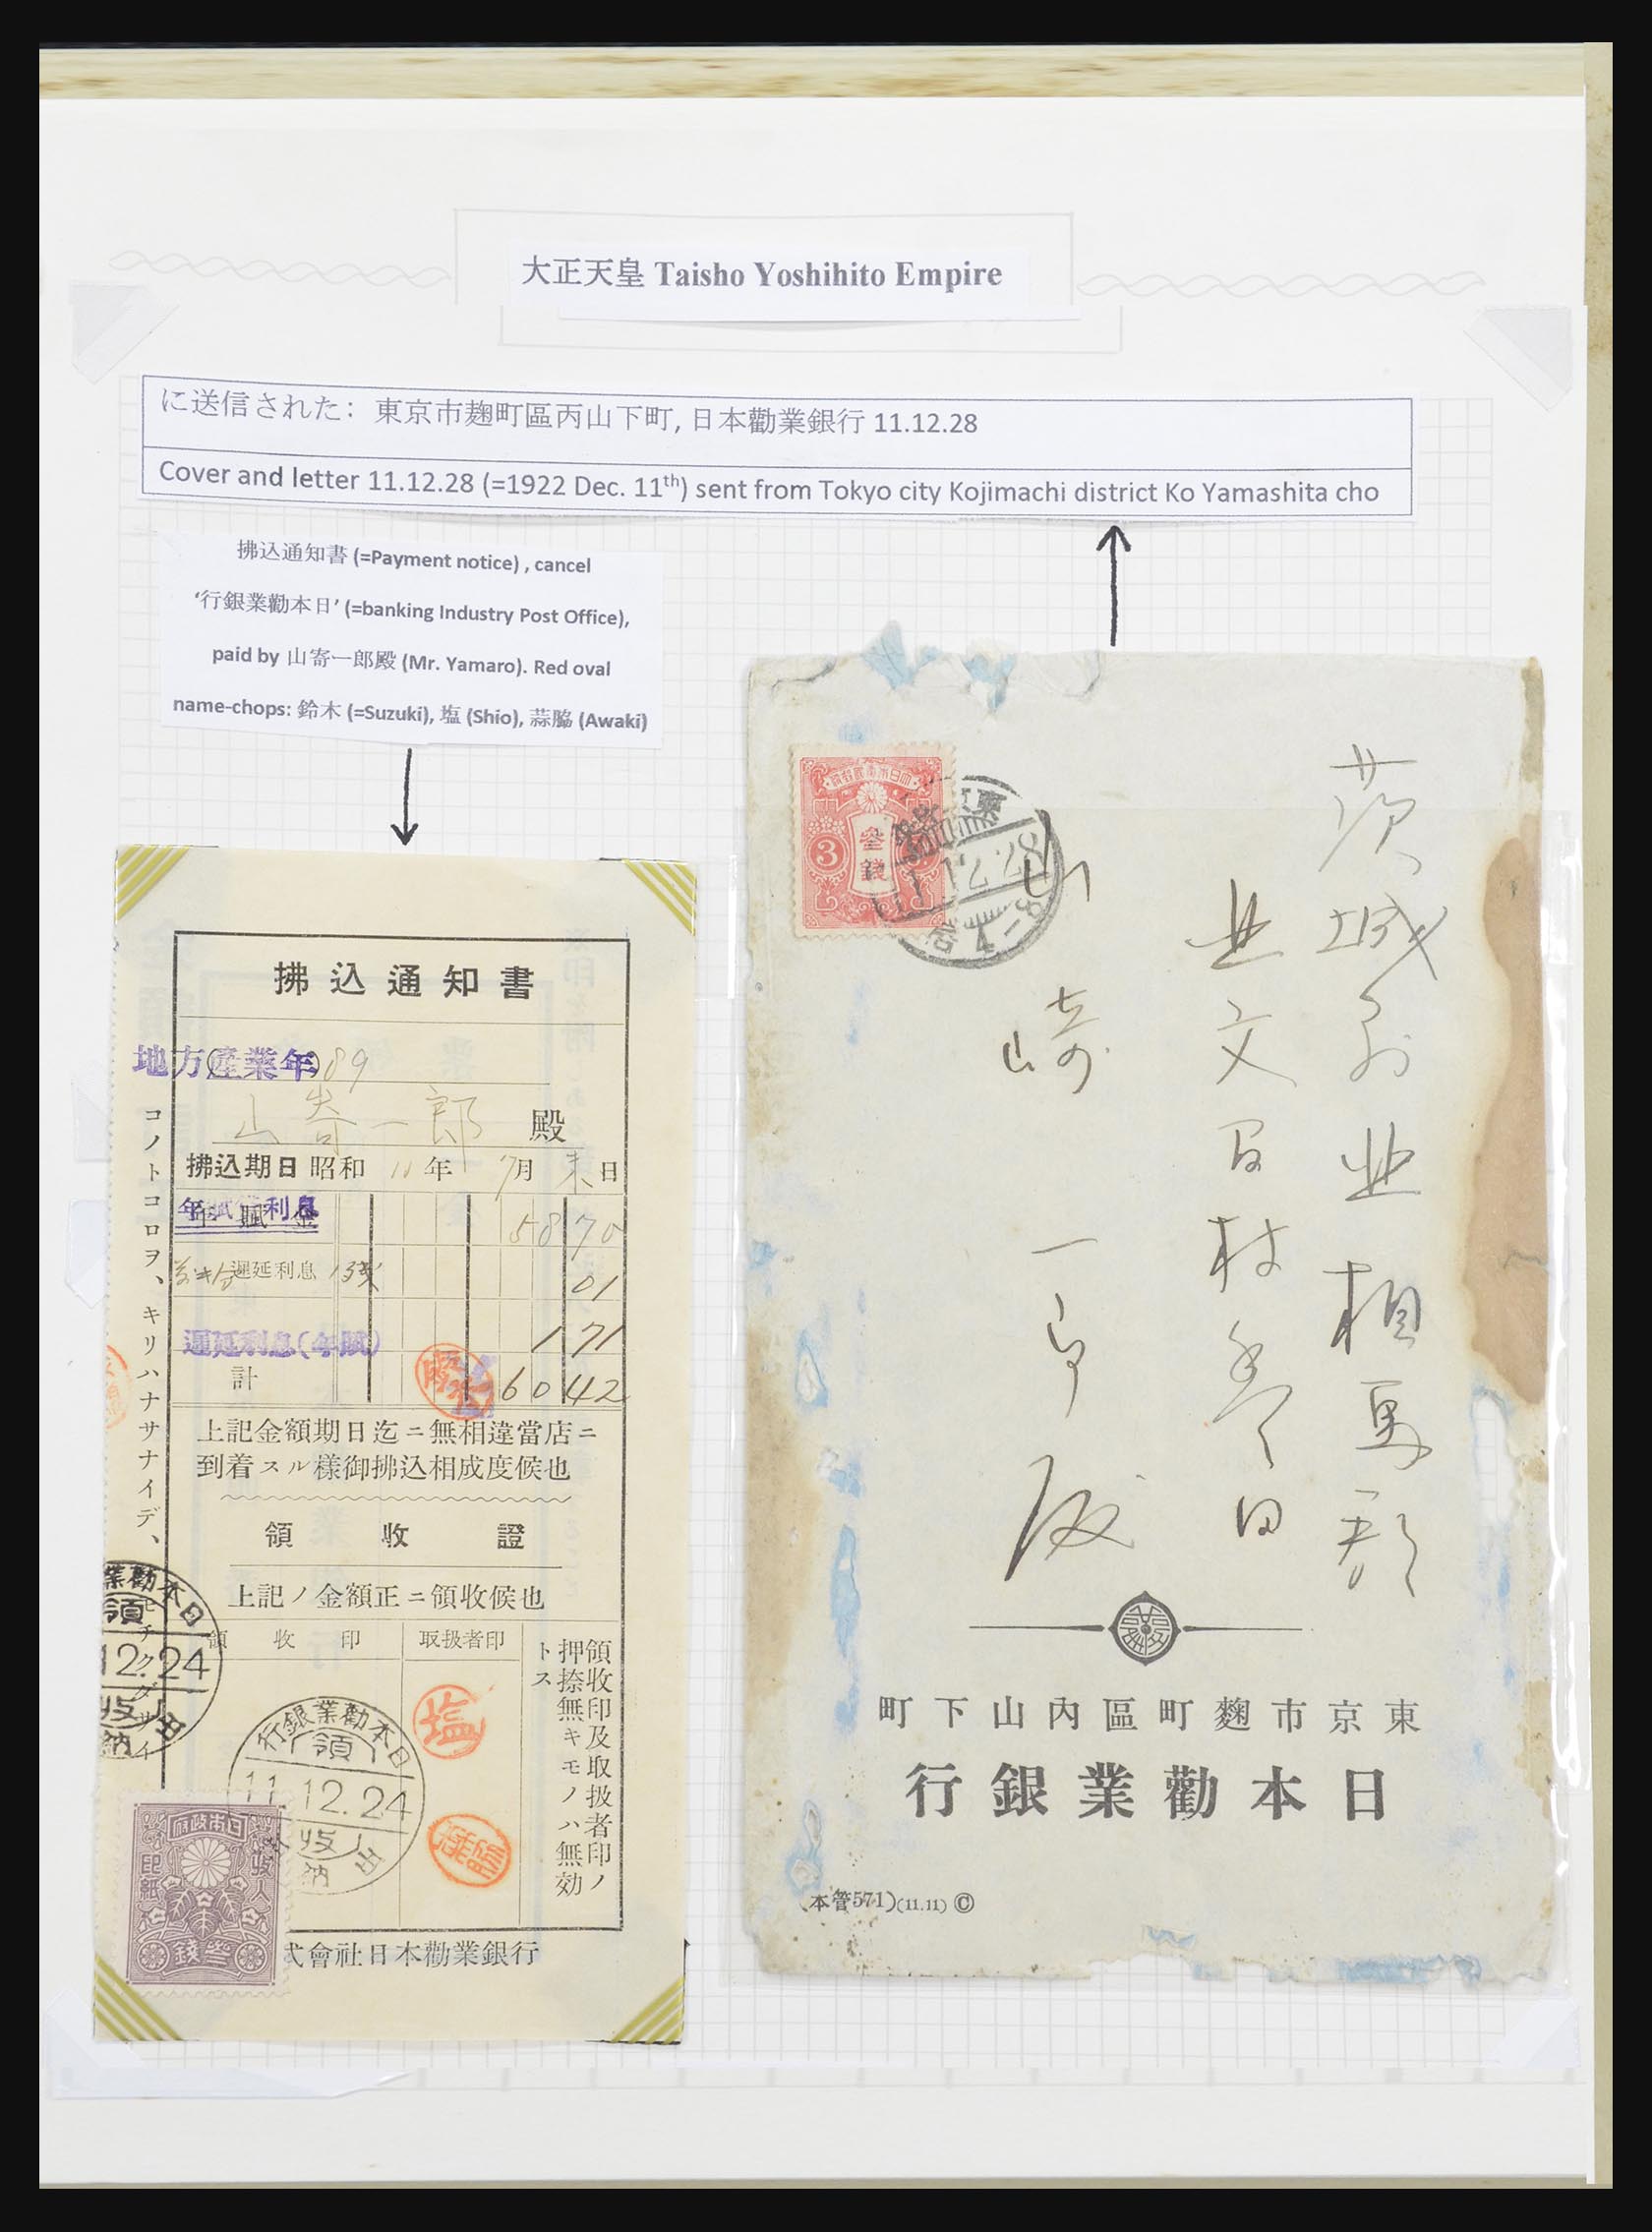 大正天皇 Taisho Yoshihito Empire
に送信された: 東京市麹町區丙山下町, 日本勸業銀行 11.12.28
Cover and letter 11.12.28 (=1922 Dec. 11th) sent from Tokyo city Kojimachi district Ko Yamashita cho
拂込通知書 (=Payment notice) , cancel
‘行銀業勸本日’ (=banking Industry Post Office),
paid by 山寄一郎殿 (Mr. Yamaro). Red oval
name-chops: 鈴木 (=Suzuki), 塩 (Shio), 蒜脇 (Awaki)
拂込通知書
地方産業年 89
山寄一郎 殿
拂込期日 昭和 11 年 7月 末日
5870
遅延利息 01
遅延利息(年賦) 171
計 6042
上記金額期日迄ニ無相違當店ニ
到着スル様御拂込相成度候也
領收證
上記ノ金額正ニ領收候也
領收印
取扱者印
領收印及取扱者印ノ
押捺無キモノハ無効
トス
塩
日本勸業銀行
領
11.12.24
收
納
コノトコロヲ、キリハナサナイデ、
12.24
日本政府
收入
印紙
錢
式會社日本勸業銀行
3
参錢
茨城縣北相馬郡
北文間村
山崎一郎殿
町下山內區町麴市京東
行銀業勸本日
(本管571)(11.11) ©